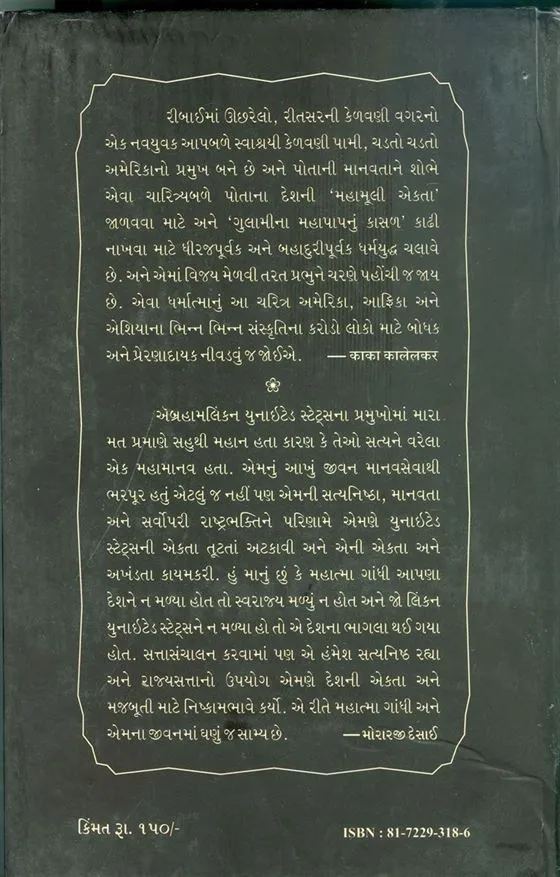 રીબાઈમાં ઊછરેલો, રીતસરની કેળવણી વગરનો
એક નવયુવક આપબળે સ્વાશ્રયી કેળવણી પામી, ચડતો ચડતો
અમેરિકાનો પ્રમુખ બને છે અને પોતાની માનવતાને શોભે
એવા ચારિત્ર્યબળે પોતાના દેશની ‘મહામૂલી એકતા’
જાળવવા માટે અને ‘ગુલામીના મહાપાપનું કાસળ’ કાઢી
નાખવા માટે ધીરજપૂર્વક અને બહાદુરીપૂર્વક ધર્મયુદ્ધ ચલાવે
છે. અને એમાં વિજય મેળવી તરત પ્રભુને ચરણે પહોંચી જ જાય
છે. એવા ધર્માત્માનું આ ચરિત્ર અમેરિકા, આફ્રિકા અને
એશિયાના ભિન્ન ભિન્ન સંસ્કૃતિના કરોડો લોકો માટે બોધક
અને પ્રેરણાદાયક નીવડવું જ જોઈએ. — કાકા કાલેલકર
ઍબ્રહામલિંકન યુનાઇટેડ સ્ટેટ્સના પ્રમુખોમાં મારા
મત પ્રમાણે સહુથી મહાન હતા કારણ કે તેઓ સત્યને વરેલા
એક મહામાનવ હતા. એમનું આખું જીવન માનવસેવાથી
ભરપૂર હતું એટલું જ નહીં પણ એમની સત્યનિષ્ઠા, માનવતા
અને સર્વોપરી રાષ્ટ્રભક્તિને પરિણામે એમણે યુનાઇટેડ
સ્ટેટ્સની એકતા તૂટતાં અટકાવી અને એની એકતા અને
અખંડતા કાયમકરી. હું માનું છું કે મહાત્મા ગાંધી આપણા
દેશને ન મળ્યા હોત તો સ્વરાજય મળ્યું ન હોત અને જો લિંકન
યુનાઇટેડ સ્ટેટ્સને ન મળ્યા હો તો એ દેશના ભાગલા થઈ ગયા
હોત. સત્તાસંચાલન કરવામાં પણ એ હંમેશ સત્યનિષ્ઠ રહ્યા
અને રાજ્યસત્તાનો ઉપયોગ એમણે દેશની એકતા અને
મજબૂતી માટે નિષ્કામભાવે કર્યો. એ રીતે મહાત્મા ગાંધી અને
એમના જીવનમાં ઘણું જ સામ્ય છે. —મોરારજી દેસાઈ
કિંમત રૂા. ૧૫૦/-
ISBN : 81-7229-318-6